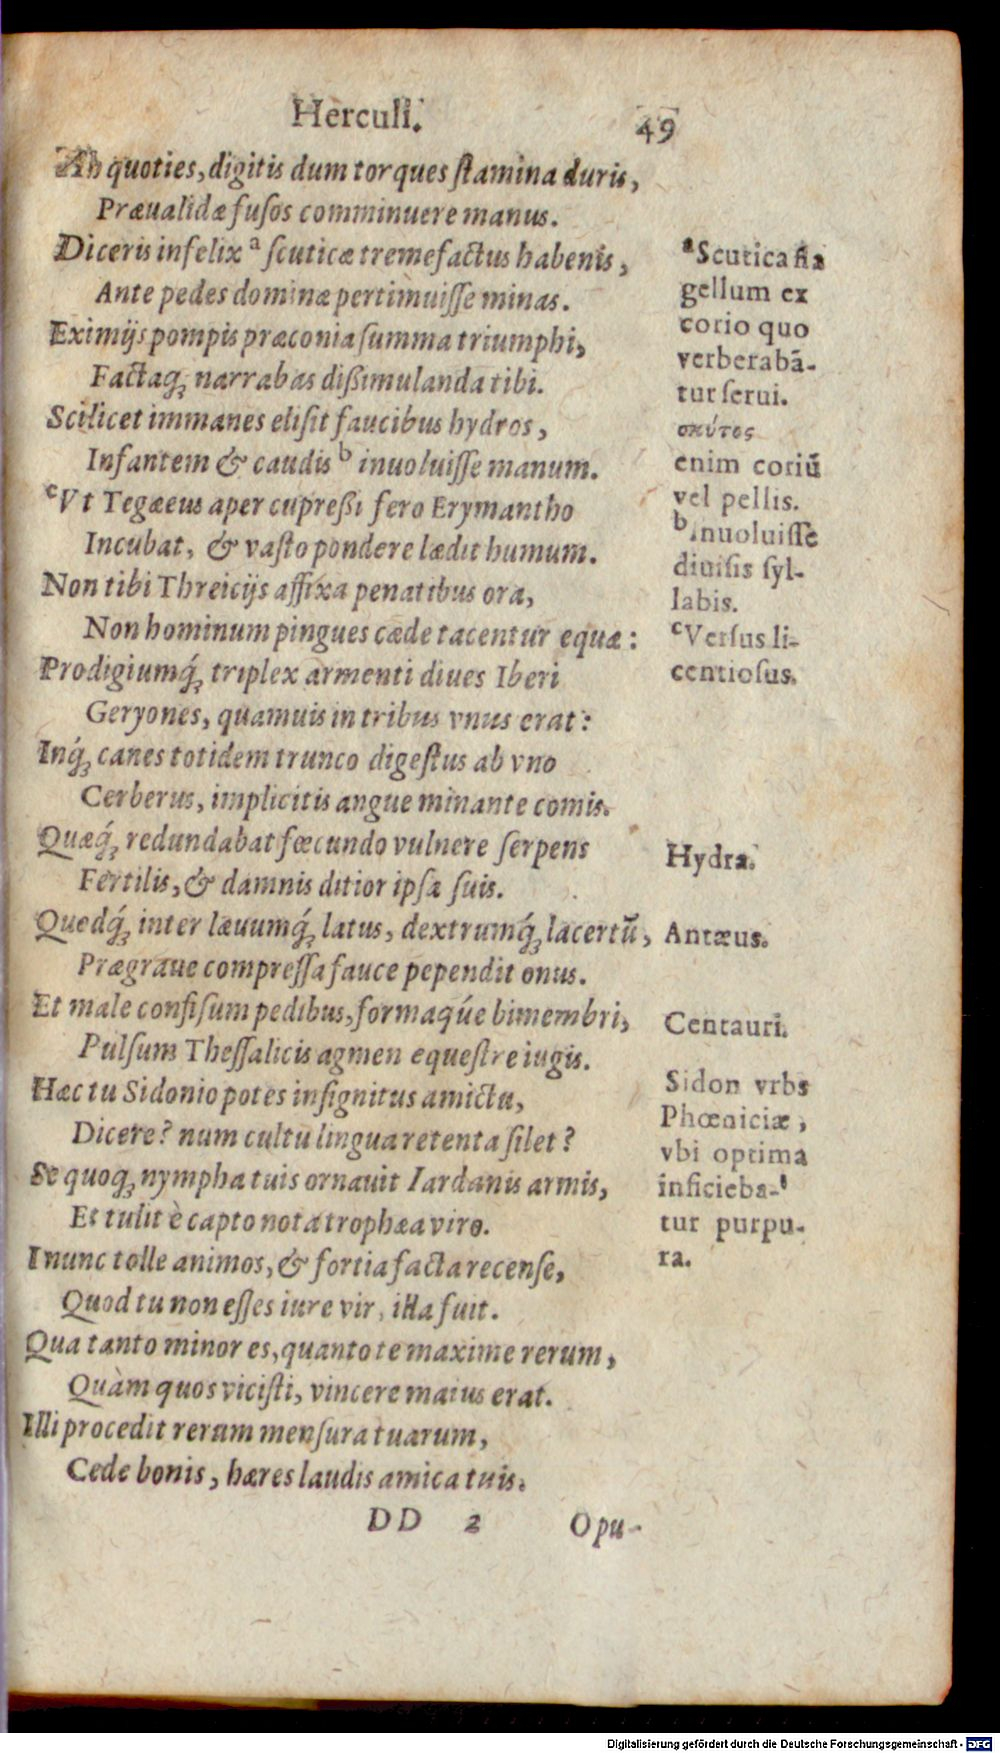 Herculi. 49
Ah quoties, digitis dum torques ſtamina duris,
Præualidæ fuſos comminuere manus.
Diceris infelix ᵃ ſcuticæ tremefactus habenis,
Ante pedes dominæ pertimuiſſe minas.
Eximijs pompis præconia ſumma triumphi,
Factaq́; narrabas dißimulanda tibi.
Scilicet immanes eliſit faucibus hydros,
Infantem & caudis ᵇ inuoluiſſe manum.
ᶜVt Tegæeus aper cupreßi fero Erymantho
Incubat, & vaſto pondere lædit humum.
Non tibi Threicijs affixa penatibus ora,
Non hominum pingues cæde tacentur equæ:
Prodigiumq́; triplex armenti diues Iberi
Geryones, quamuis in tribus vnus erat:
Inq́; canes totidem trunco digeſtus ab vno
Cerberus, implicitis angue minante comis.
Quæq́; redundabat fœcundo vulnere ſerpens
Fertilis, & damnis ditior ipſa ſuis.
Quedq́; inter læuumq́; latus, dextrumq́; lacertũ,
Prægraue compreſſa fauce pependit onus.
Et male confiſum pedibus, formaqúe bimembri,
Pulſum Theſſalicis agmen equeſtre iugis.
Hæc tu Sidonio potes inſignitus amictu,
Dicere? num cultu lingua retenta ſilet?
Se quoq; nympha tuis ornauit Iardanis armis,
Et tulit è capto nota trophæa viro.
I nunc tolle animos, & fortia facta recenſe,
Quod tu non eſſes iure vir, illa fuit.
Qua tanto minor es, quanto te maxime rerum,
Quàm quos viciſti, vincere maius erat.
Illi procedit rerum menſura tuarum,
Cede bonis, hæres laudis amica tuis.
DD 2 Opu-
ᵃScutica fla
gellum ex
corio quo
verberabã-
tur ſerui.
σκύτος
enim coriũ
vel pellis.
ᵇinuoluiſſe
diuiſis ſyl-
labis.
ᶜVerſus li-
centioſus.
Hydra.
Antæus.
Centauri.
Sidon vrbs
Phœniciæ,
vbi optima
inficieba-
tur purpu-
ra.
Digitalisierung gefördert durch die Deutsche Forschungsgemeinschaft - DFG